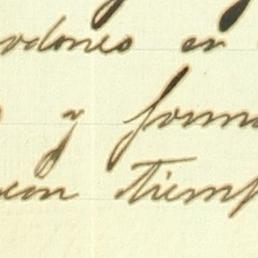 odones en
y forma
eon tiemp